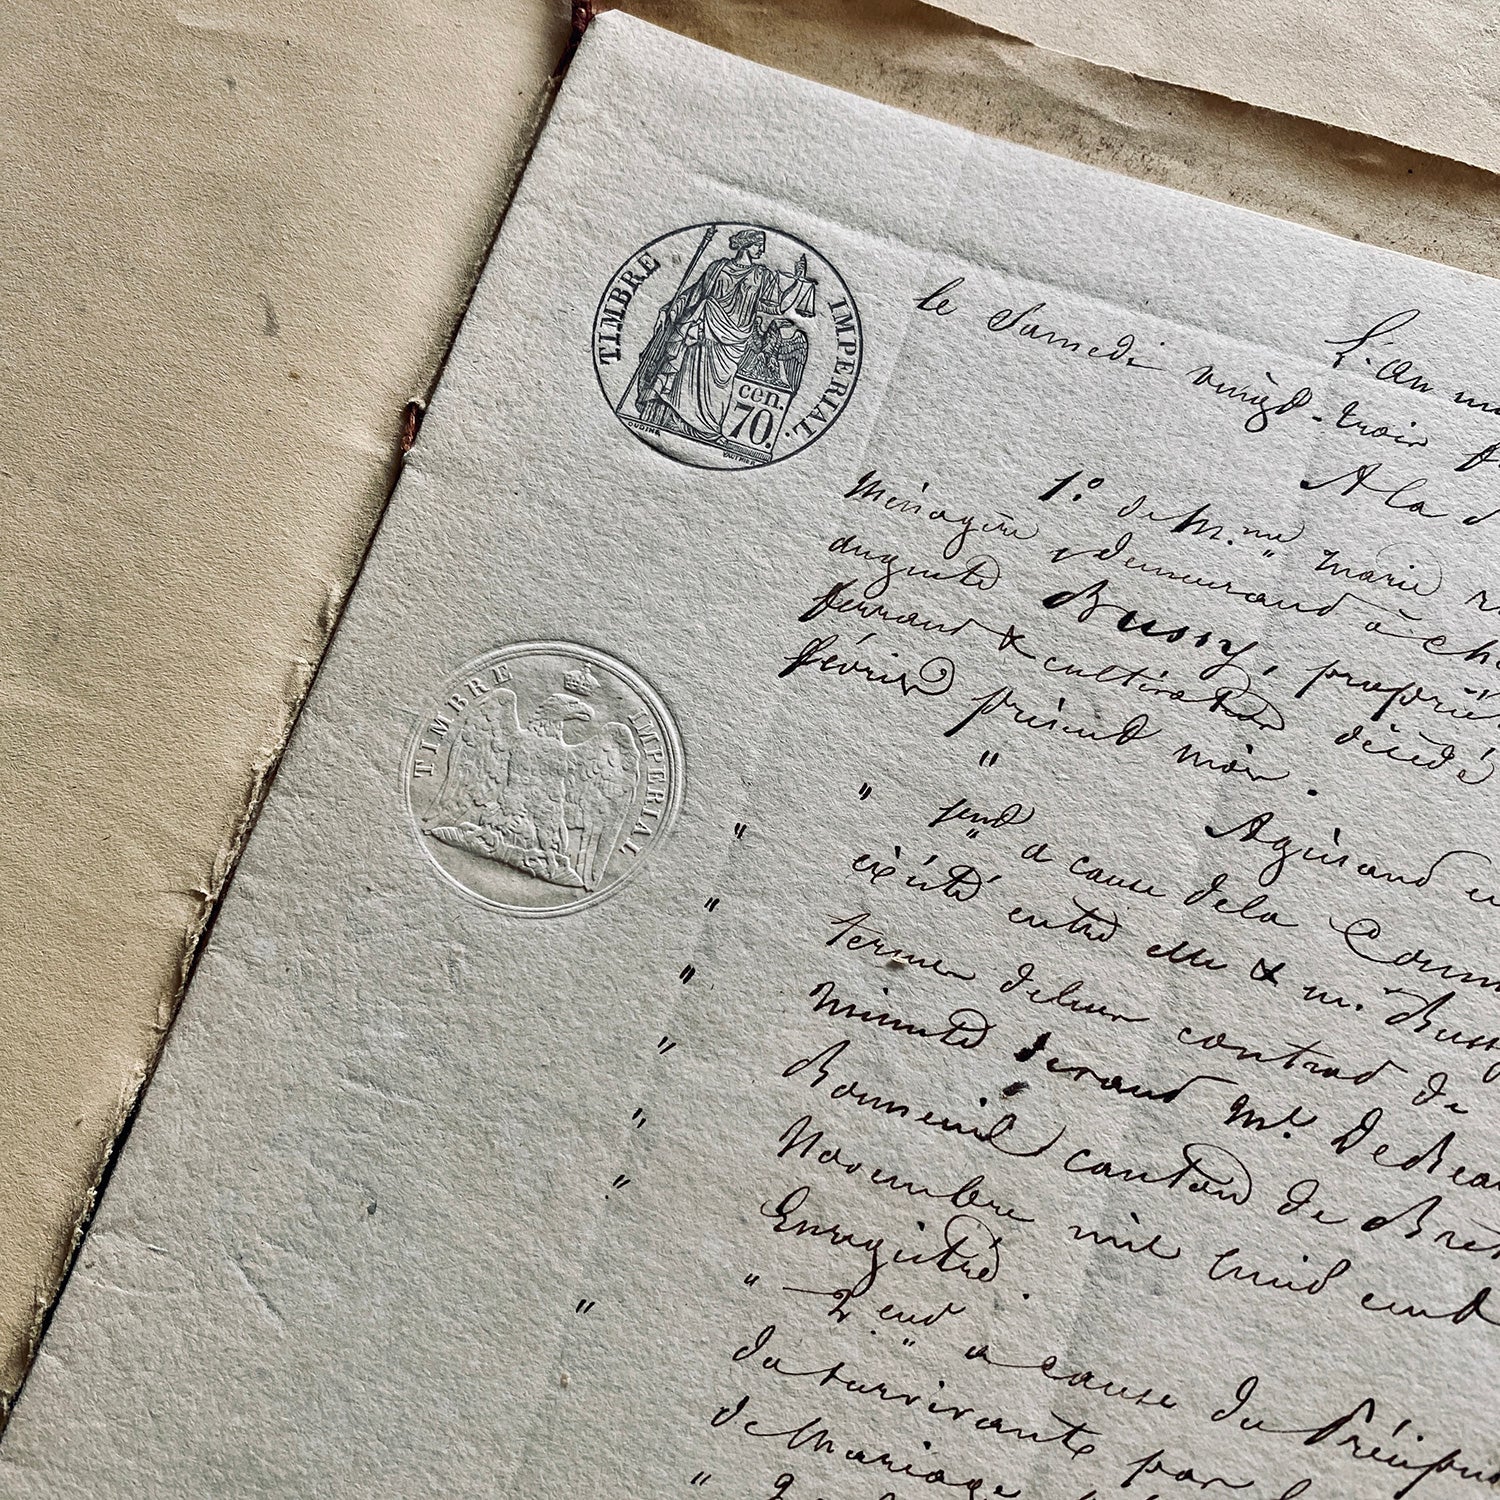 TIMBRE IMPERIAL.
cen.
70.
OUDINÉ
TIMBRE IMPERIAL
L'an
le Samedi vingt-trois
A la
1.° de M.me Marie
Ménagère demeurant à
auguste Bussy, propriét
ferrand & cultivateur décédé
février présent mois.
" "
Agissant
1ent a cause de la Comm
existé entre elle & m. Bussy
termes de leur contrat de
Minute devant Mt.
Bonneuil canton de
Novembre mil huit cent
Enregistré.
" 2.ent a cause du Précipu
du survivant par
de Mariage
"